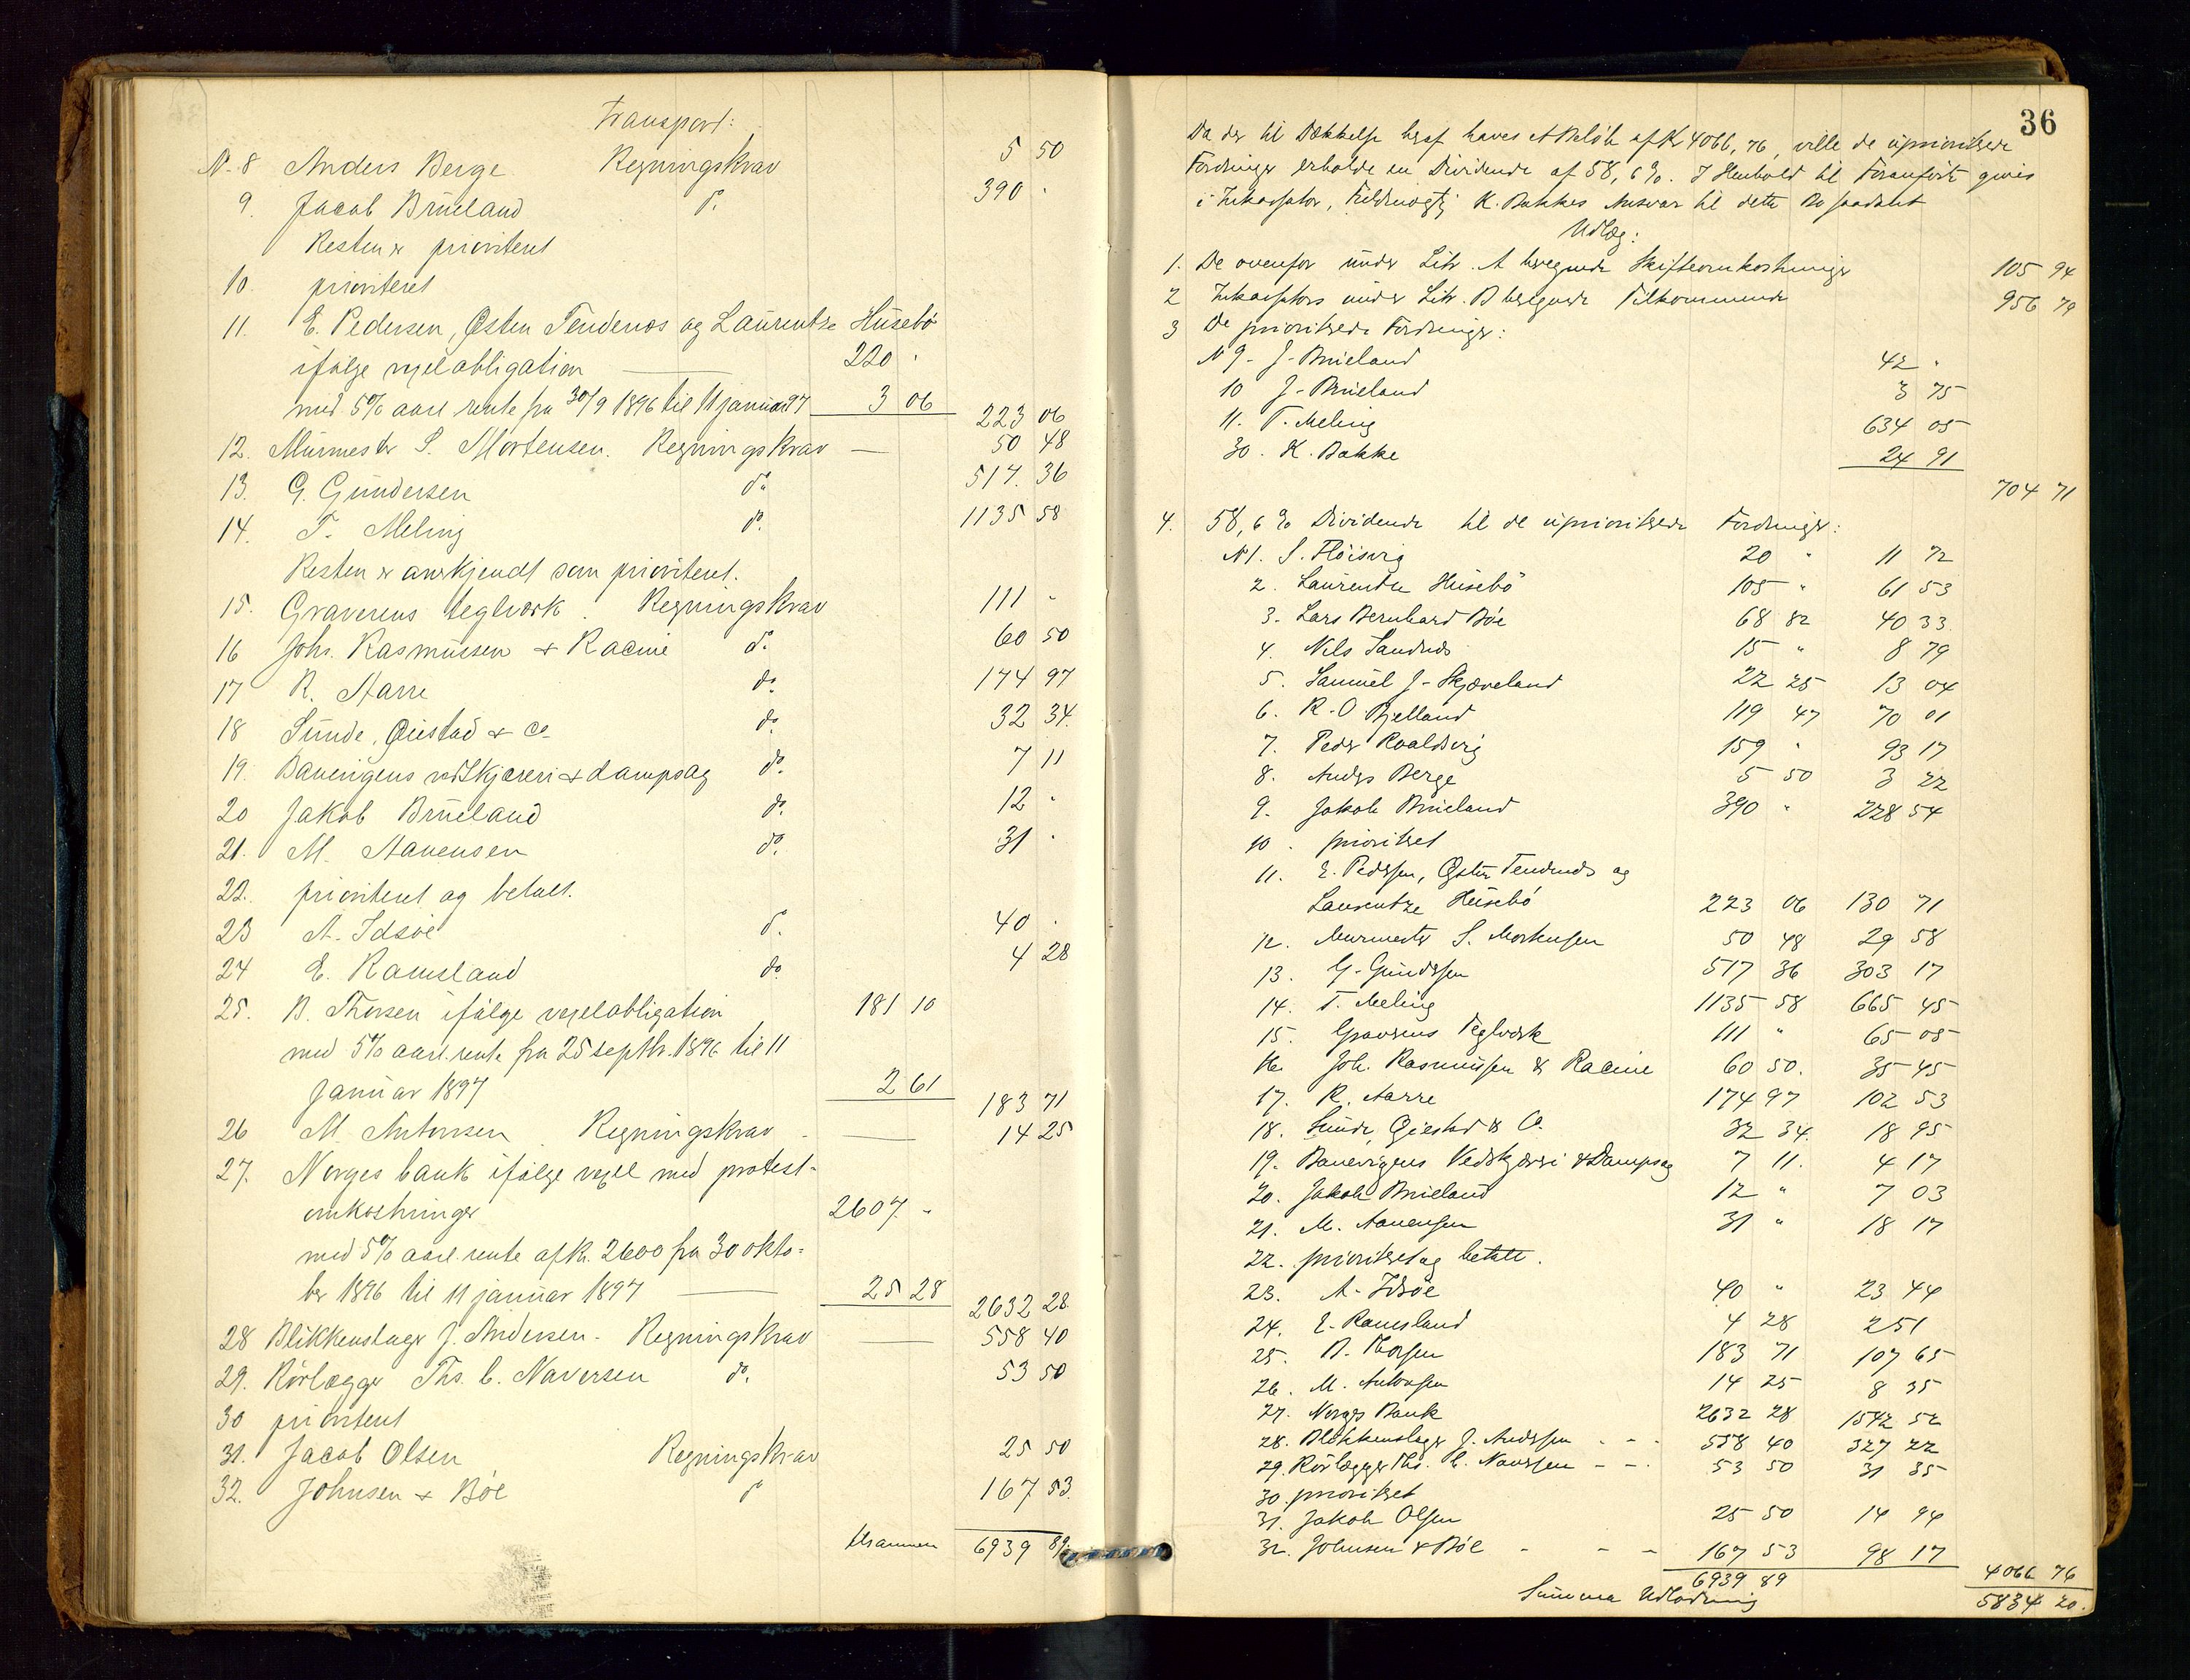 Transport:
N. 8 Anders Berge Regningskrav 5 50
9. Jacob Brüeland do. 390 "
Resten er prioriteret
10. prioriteret
11. E. Pedersen, Østen Tendenæs og Laurentze Husebö
ifølge vexelobligation 220 "
med 5% aarl. rente fra 30/9 1896 til 11 januar 97 3 06 223 06
12. Murmester S. Mortensen. Regningskrav 50 48
13. G. Gundersen do. 517. 36
14. T. Meling do. 1135 58
Resten er anerkjendt som prioriteret.
15. Graverens teglværk. Regningskrav 111 "
16 Johs. Rasmussen & Racine do. 60 50
17 R. Aarre do. 174 97
18 Sunde, Øiestad & Co. do. 32 34.
19. Banevigens vedskjæreri & dampsag do. 7 11
20 Jakob Brüeland do. 12 "
21. M. Aanensen do. 31 "
22. prioriteret og betalt.
23 A. Idsøe do. 40 "
24 E. Ramsland do. 4 28
25. B. Thorsen ifølge vexelobligation 181 10
med 5% aarl. rente fra 25 septbr. 1896 til 11
januar 1897 2 61 183 71
26 M. Antonsen Regningskrav 14 25
27. Norges bank ifølge vexel med protest-
omkostninger 2607. "
med 5% aarl. rente af kr. 2600 fra 30 okto-
ber 1896 til 11 januar 1897 25 28 2632 28
28 Blikkenslager J. Andersen. Regningskrav 558 40
29. Rørlægger Ths. C. Naversen do. 53 50
30 prioriteret
31. Jacob Olsen Regningskrav 25 50
32. Johnsen & Böe do 167 53.
tilsammen 6939 89
36
Da der til Dækkelse heraf haves et Beløb af Kr 4066,76, ville de uprioriterede
Fordringer erholde en Dividende af 58,6%. I Henhold til Foranførte gives
i Inkassator, Fuldmægtig K. Bakkes Ansvar til dette Bo saadant
Udlæg:
1. De ovenfor under Litr. A beregnede Skifteomkostninger 105 94
2 Inkassators under Litr. B beregnede Tilkommende 956 79
3 De prioriterede Fordringer:
N 9 - J. Brüeland 42 "
10 J. Brüeland 3 75
11. T. Meling 634 05
30. K. Bakke 24 91
704 71
4. 58,6% Dividende til de uprioriterede Fordringer:
N 1. S. Flöisvig 20 " 11 72
2. Laurentze Husebö 105 " 61 53
3. Lars Bernhard Böe 68 82 40 33.
4. Nils Sandnes 15 " 8 79
5. Samuel J. Skjæveland 22 25 13 04
6. R. O. Bjelland 119 47 70 01
7. Peder Roaldsvig 159 " 93 17
8. Anders Berge 5 50 3 22
9. Jakob Brüeland 390 " 228 54
10. prioriteret
11. E. Pedersen, Østen Tendenæs og
Laurentze Husebö 223 06 130 71
12. Murmester S. Mortensen 50 48 29 58
13. G. Gundersen 517 36 303 17
14. T. Meling 1135 58 665 45
15. Graverens Teglværk 111 " 65 05
16. Joh. Rasmussen & Racine 60 50. 35 45
17. R. Aarre 174 97 102 53
18. Sunde, Øiestad & Co. 32 34. 18 95
19. Banevigens Vedskjæreri & Dampsag 7 11. 4 17
20. Jakob Brüeland 12 " 7 03
21. M. Aanensen 31 " 18 17
22. prioriteret og betalt.
23. A. Idsøe 40 " 23 44
24. E. Ramsland 4 28 2 51
25. B. Thorsen 183 71 107 65
26. M. Antonsen 14 25 8 35
27. Norges Bank 2632 28 1542 52
28. Blikkenslager J. Andersen - - - 558 40 327 22
29. Rörlægger Ths. C. Naversen - - 53 50 31 35
30. prioriteret
31. Jakob Olsen 25 50 14 94
32. Johnsen & Böe - - - 167 53 98 17
6939 89 4066 76
Summa Udlodning 5834 20.